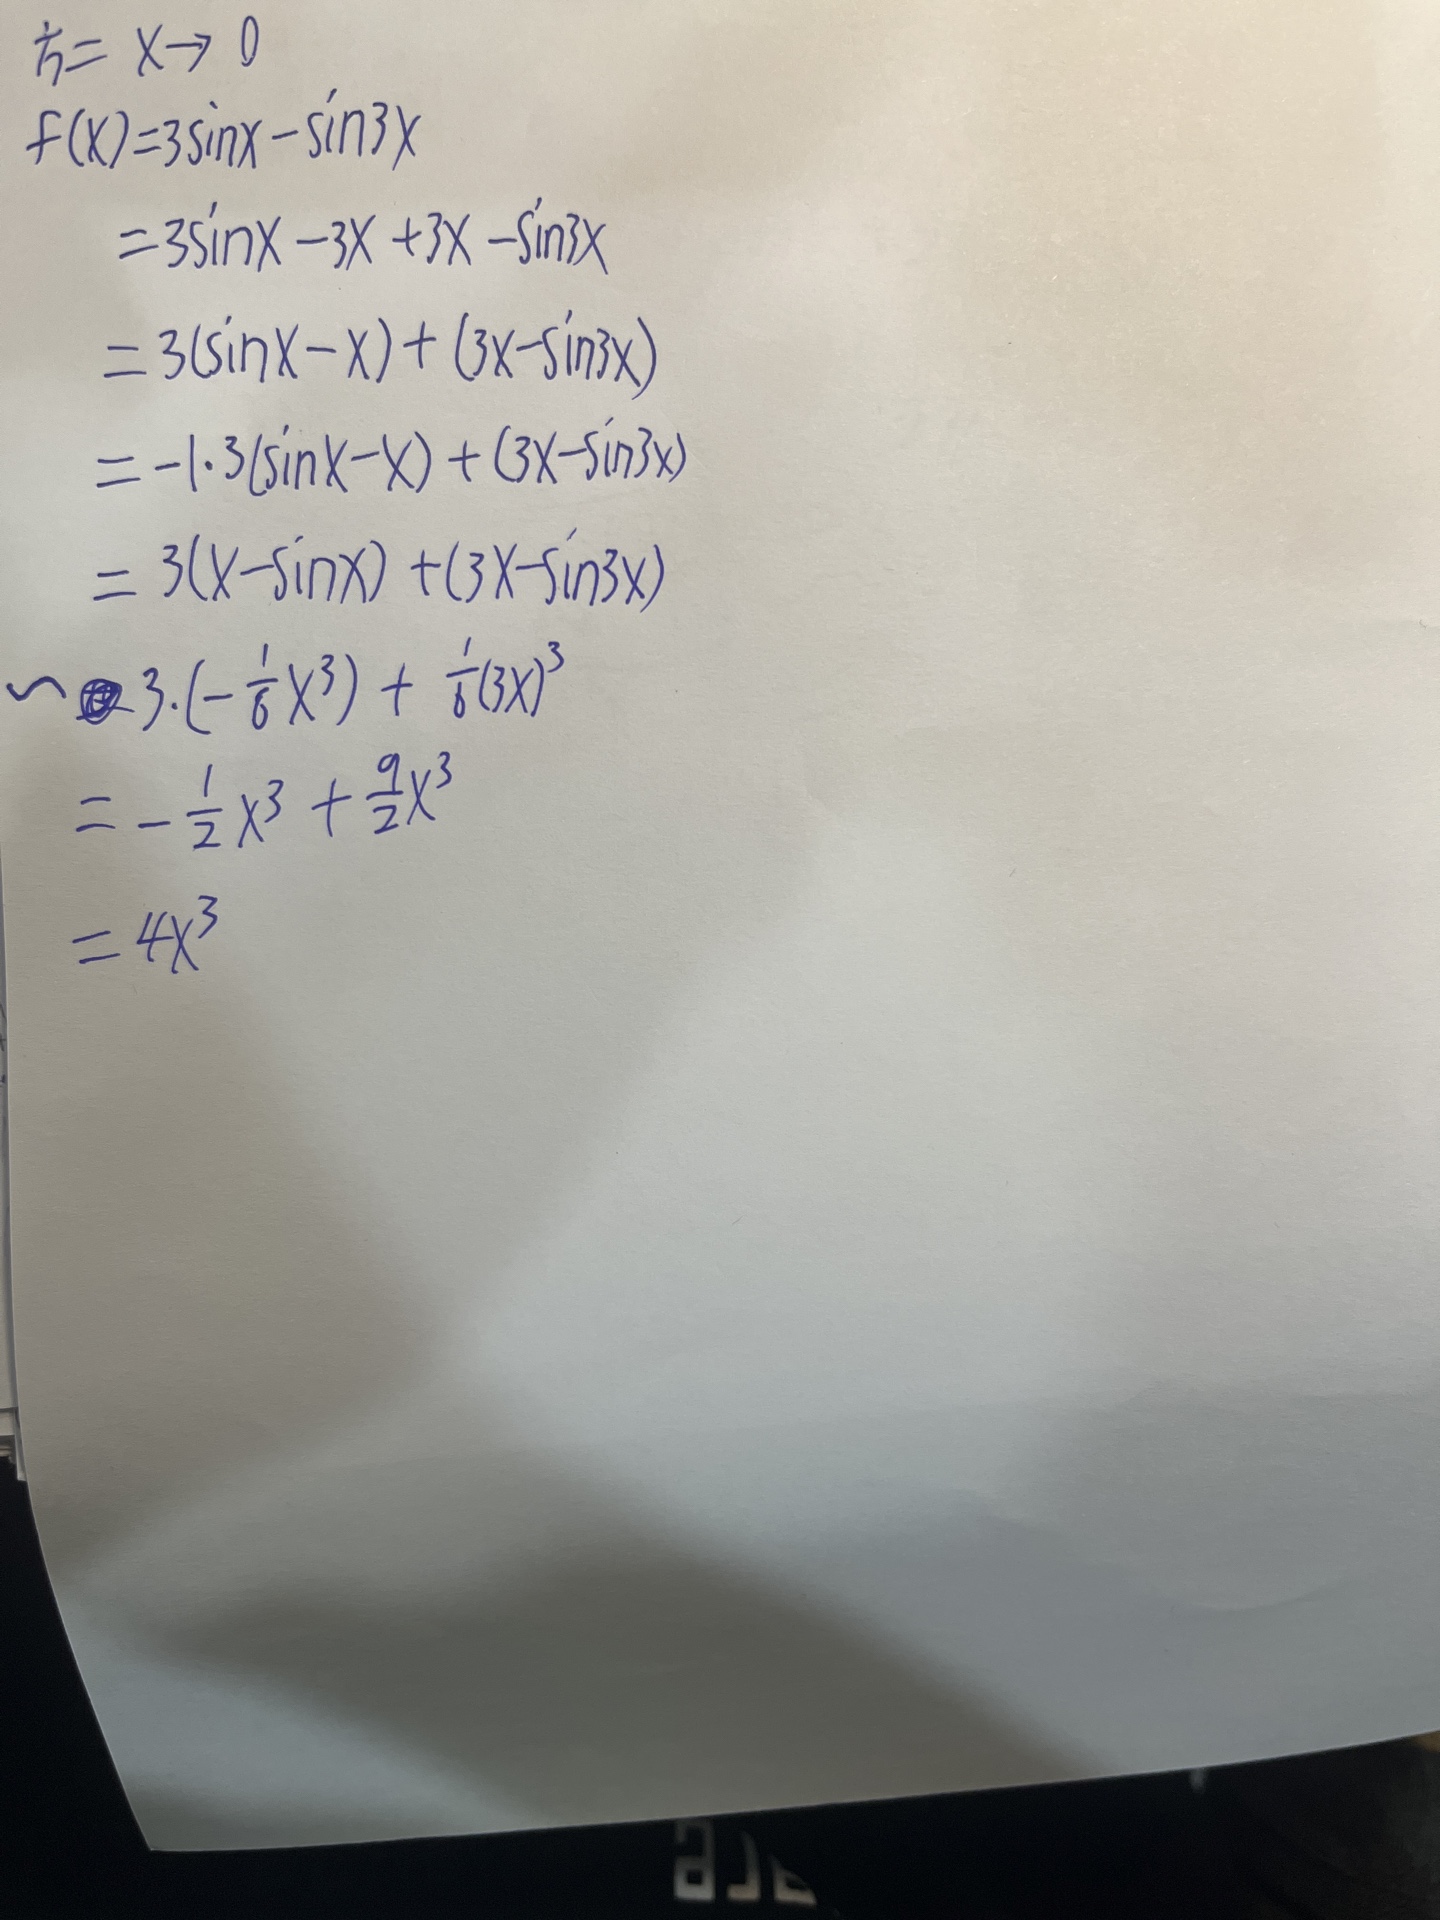 方= x→0
f(x)=3sinx-sin3x
=3sinx-3x+3x-sin3x
=3(sinx-x)+(3x-sin3x)
=-1·3(sinx-x)+(3x-sin3x)
=3(x-sinx)+(3x-sin3x)
~ 3·(-1/6x³)+1/6(3x)³
=-1/2x³+9/2x³
=4x³